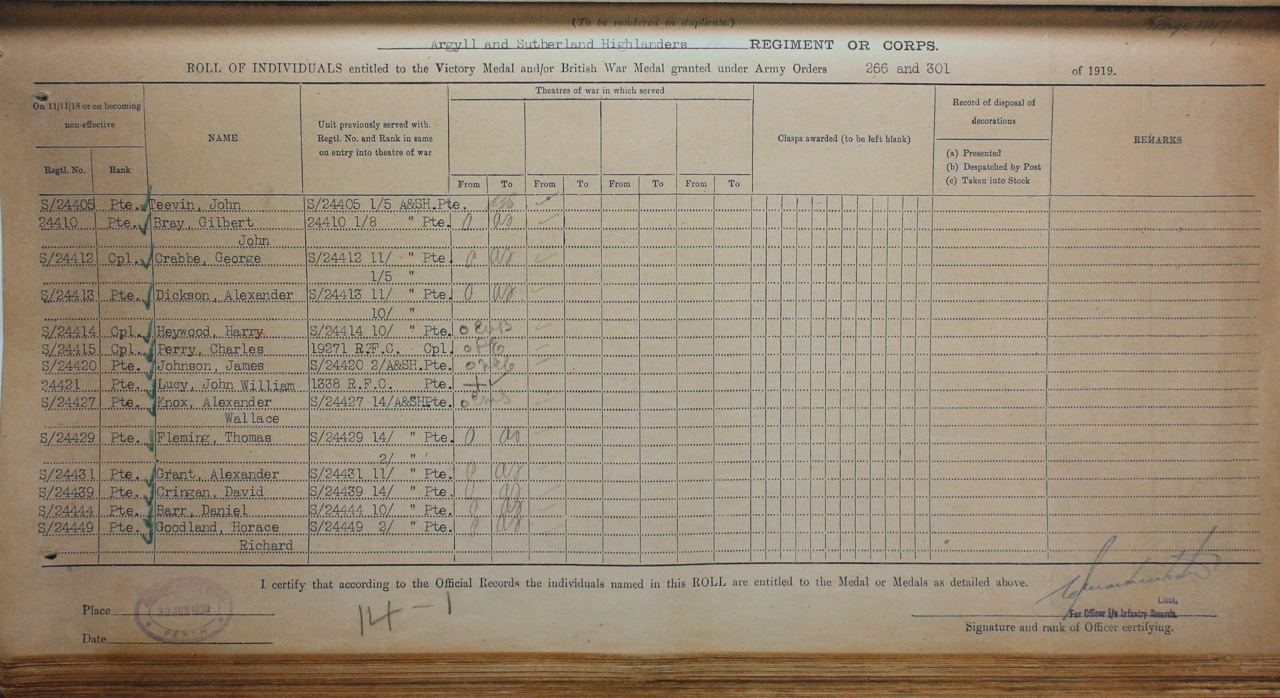 (To be rendered in duplicate.)
Argyll and Sutherland Highlanders REGIMENT OR CORPS.
ROLL OF INDIVIDUALS entitled to the Victory Medal and/or British War Medal granted under Army Orders 266 and 301 of 1919.
On 11/11/18 or on becoming non-effective
Regtl. No.
Rank
NAME
Unit previously served with.
Regtl. No. and Rank in same
on entry into theatre of war
Theatres of war in which served
From To From To From To From To
Clasps awarded (to be left blank)
Record of disposal of
decorations
(a) Presented
(b) Despatched by Post
(c) Taken into Stock
REMARKS
S/24405 Pte. Teevin, John S/24405 1/5 A&SH.Pte.
24410 Pte. Bray, Gilbert 24410 1/8 " Pte.
John
S/24412 Cpl. Crabbe, George S/24412 11/ " Pte.
1/5 "
S/24413 Pte. Dickson, Alexander S/24413 11/ " Pte.
10/ "
S/24414 Cpl. Heywood, Harry S/24414 10/ " Pte.
S/24415 Cpl. Perry, Charles 19271 R.F.C. Cpl.
S/24420 Pte. Johnson, James S/24420 2/A&SH.Pte.
24421 Pte. Lucy, John William 1338 R.F.C. Pte.
S/24427 Pte. Knox, Alexander S/24427 14/A&SHPte.
Wallace
S/24429 Pte. Fleming, Thomas S/24429 14/ " Pte.
2/ "
S/24431 Pte. Grant, Alexander S/24431 11/ " Pte.
S/24439 Pte. Cringan, David S/24439 14/ " Pte.
S/24444 Pte. Barr, Daniel S/24444 10/ " Pte.
S/24449 Pte. Goodland, Horace S/24449 2/ " Pte.
Richard
I certify that according to the Official Records the individuals named in this ROLL are entitled to the Medal or Medals as detailed above.
Place
PERTH
14-1
Date
Lieut.
For Officer i/c Infantry Records.
Signature and rank of Officer certifying.